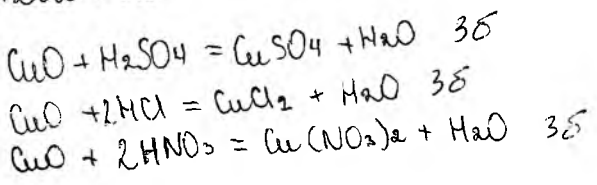 CuO + H2SO4 = CuSO4 + H2O 3б
CuO + 2HCl = CuCl2 + H2O 3б
CuO + 2HNO3 = Cu(NO3)2 + H2O 3б